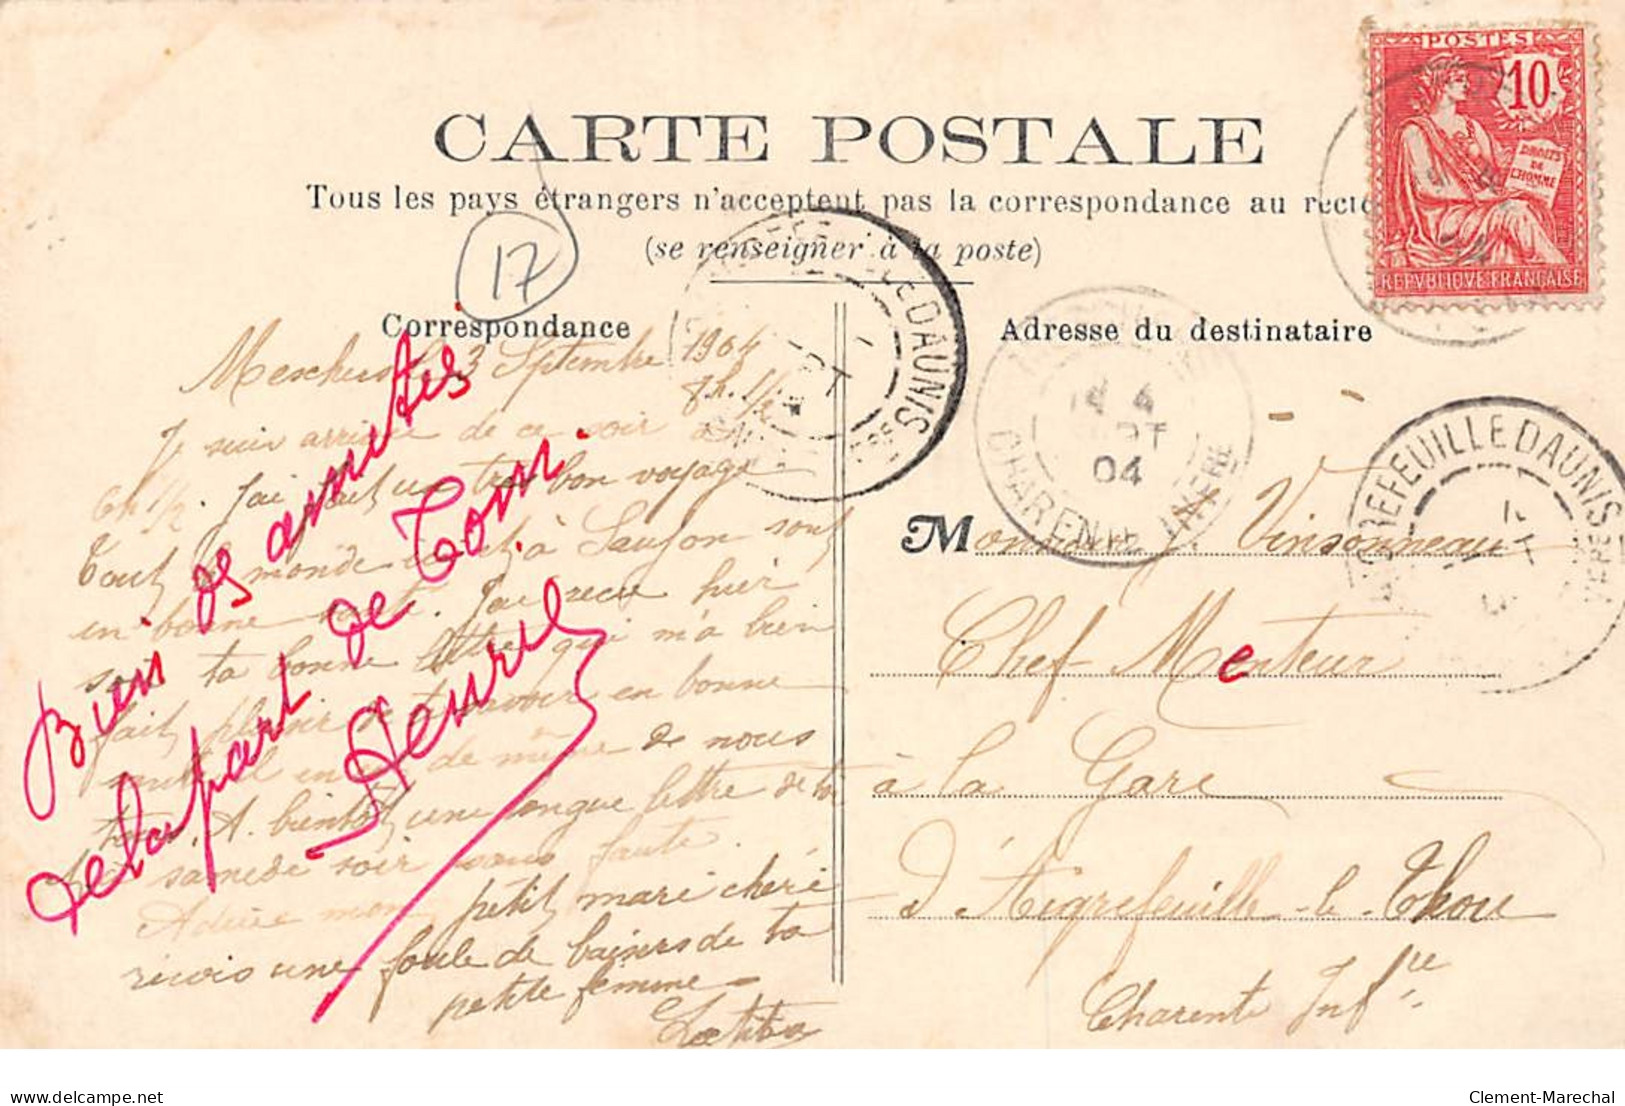 CARTE POSTALE
Tous les pays étrangers n'acceptent pas la correspondance au recto
(se renseigner à la poste)
17
POSTES
10
DROITS
DE
L'HOMME
REPVBLIQVE FRANÇAISE
Correspondance
Adresse du destinataire
Meschers le 3 Septembre 1904
8h. 1/2
Je suis arrivée de ce soir à
6h 1/2. J'ai fait un très bon voyage
Tout le monde à Saujon sont
en bonne santé. J'ai reçu hier
soir ta bonne lettre qui m'a bien
fait plaisir de te savoir en bonne
santé il en est de même de nous
tous. A bientôt une longue lettre de toi
samedi soir sans faute.
Adieu mon petit mari chéri
reçois une foule de baisers de ta
petite femme
Laetitia
Bien des amitiés
de la part de Tom.
Henri
Monsieur Vinsonneau
Chef Menteur
à la Gare
d'Aigrefeuille-le-Thou
Charente Inf.re
AIGREFEUILLE D'AUNIS
4
04
CHARENTE INFRE
AIGREFEUILLE D'AUNIS
delcampe.net
Clement-Marechal